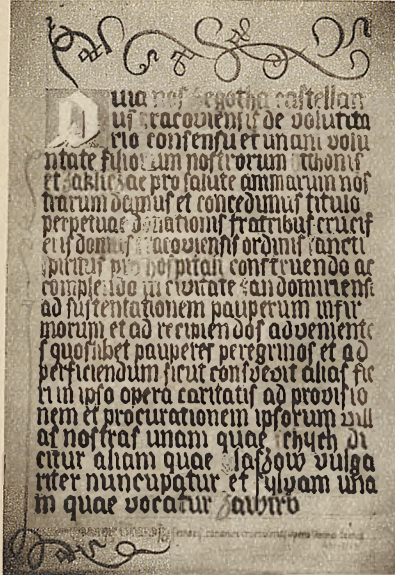 Quia nos Zegotha castellan
us cracoviensis de voluta
rio consensu et unani volu
ntate filiorum nostrorum Otthonis
et Zakliczae pro salute animarum nos
trarum damus et concedimus titulo
perpetuae donationis fratribus crucif
eris domus cracoviensis ordinis sancti
spiritus pro hospitali construendo ac
complendo in civitate Sandomiriensi
ad sustentationem pauperum infir
morum et ad recipiendos adveniente
s quoslibet pauperes peregrinos et ad
perficiendum sicut consuevit alias fie
ri in ipso opera caritatis ad provisio
nem et procurationem ipsorum vill
as nostras unam quae chych di
citur aliam quae laszow vulga
riter nuncupatur et sylvam una
m quae vocatur